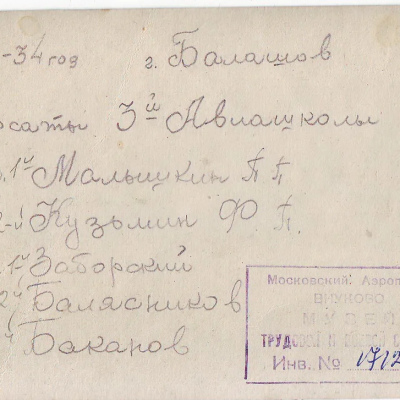 -34 год г. Балашов
рсанты 3й Авиашколы
1й Малышкин П П.
2-й Кузьмин Ф. П.
1й Заборский
2й Балясников
Баканов
Московский Аэроп
ВНУКОВО
МУЗЕЙ
ТРУДОВОЙ И БОЕВОЙ С
Инв. № 1712